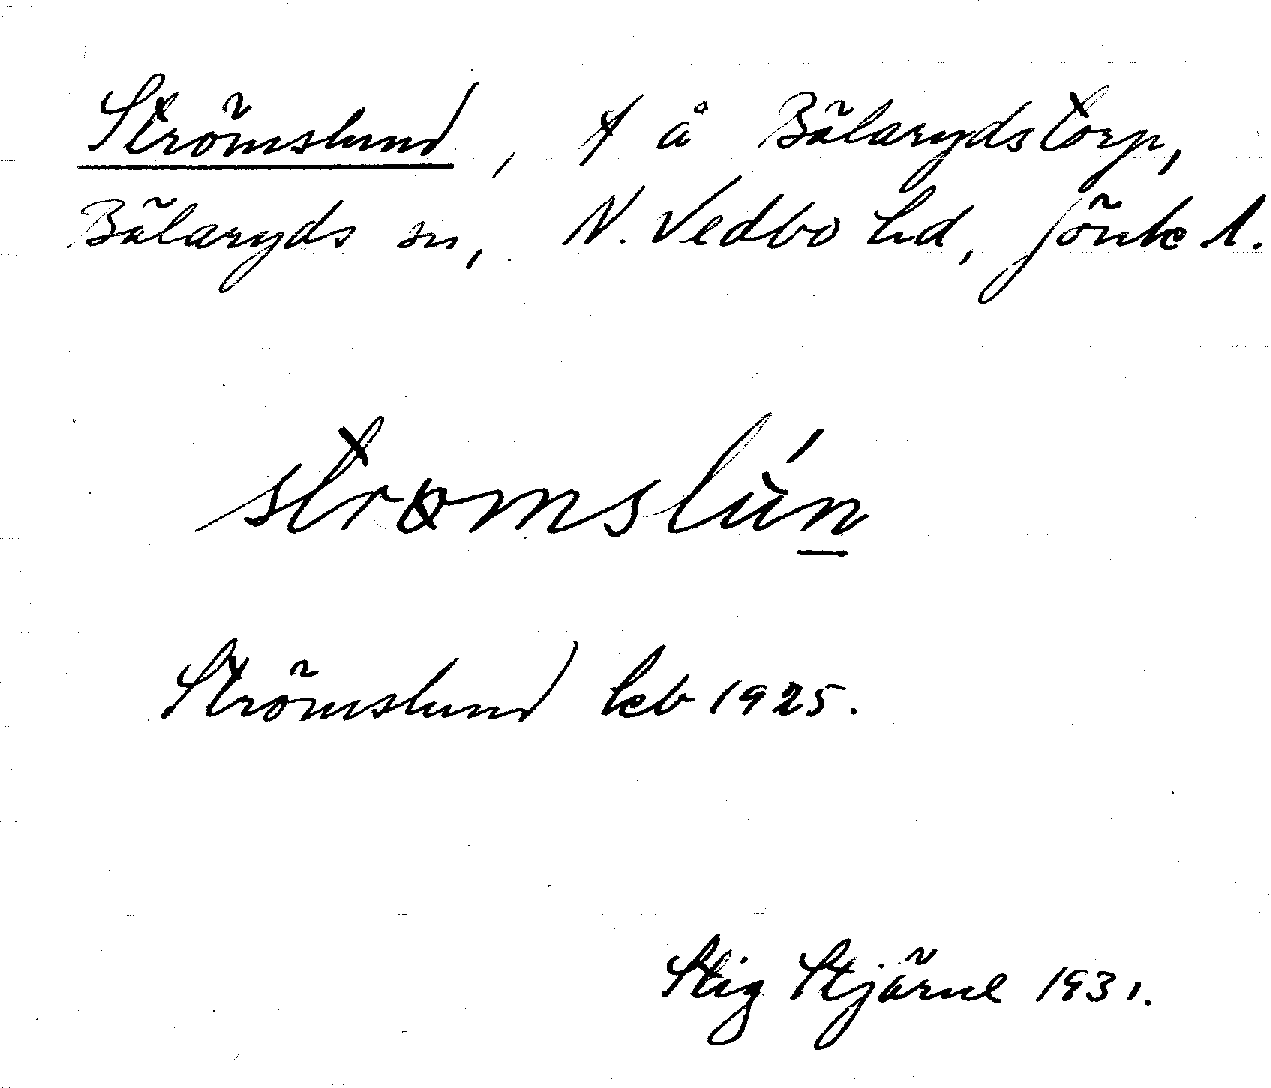 Strömslund, t å Bälarydstorp,
Bälaryds sn, N. Vedbo hd, Jönk l.
strømslùn
Strömslund kb 1925.
Stig Stjärne 1931.